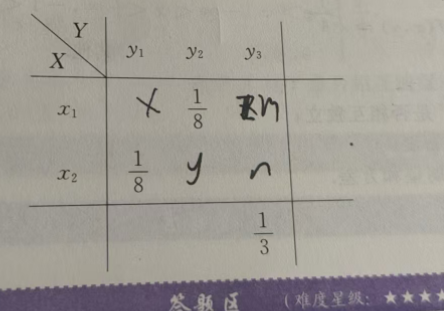 Y
X y₁ y₂ y₃
x₁ X 1/8 m
x₂ 1/8 y n
1/3
答题区 (难度星级: ★★★★